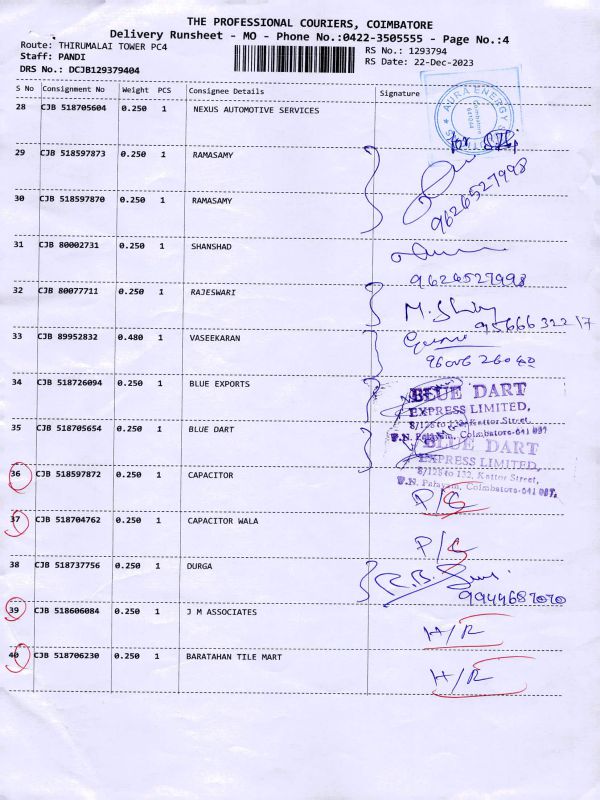 THE PROFESSIONAL COURIERS, COIMBATORE
Delivery Runsheet - MO - Phone No.:0422-3505555 - Page No.:4
Route: THIRUMALAI TOWER PC4
RS No.: 1293794
Staff: PANDI
RS Date: 22-Dec-2023
DRS No.: DCJB129379404
S No Consignment No Weight PCS Consignee Details Signature
28 CJB 518705604 0.250 1 NEXUS AUTOMOTIVE SERVICES
AURA ENERGY
Coimbatore
29 CJB 518597873 0.250 1 RAMASAMY
9626527998
30 CJB 518597870 0.250 1 RAMASAMY
31 CJB 80002731 0.250 1 SHANSHAD
9626527998
32 CJB 80077711 0.250 1 RAJESWARI
33 CJB 89952832 0.480 1 VASEEKARAN
34 CJB 518726094 0.250 1 BLUE EXPORTS
BLUE DART
EXPRESS LIMITED,
8/128 to 132, Kattor Street,
P.N. Palayam, Coimbatore-641 037.
35 CJB 518705654 0.250 1 BLUE DART
BLUE DART
EXPRESS LIMITED,
8/128 to 132, Kattor Street,
P.N. Palayam, Coimbatore-641 037.
36 CJB 518597872 0.250 1 CAPACITOR
P/C
37 CJB 518704762 0.250 1 CAPACITOR WALA
P/C
38 CJB 518737756 0.250 1 DURGA
9944687070
39 CJB 518606084 0.250 1 J M ASSOCIATES
H/R
40 CJB 518706230 0.250 1 BARATAHAN TILE MART
H/R